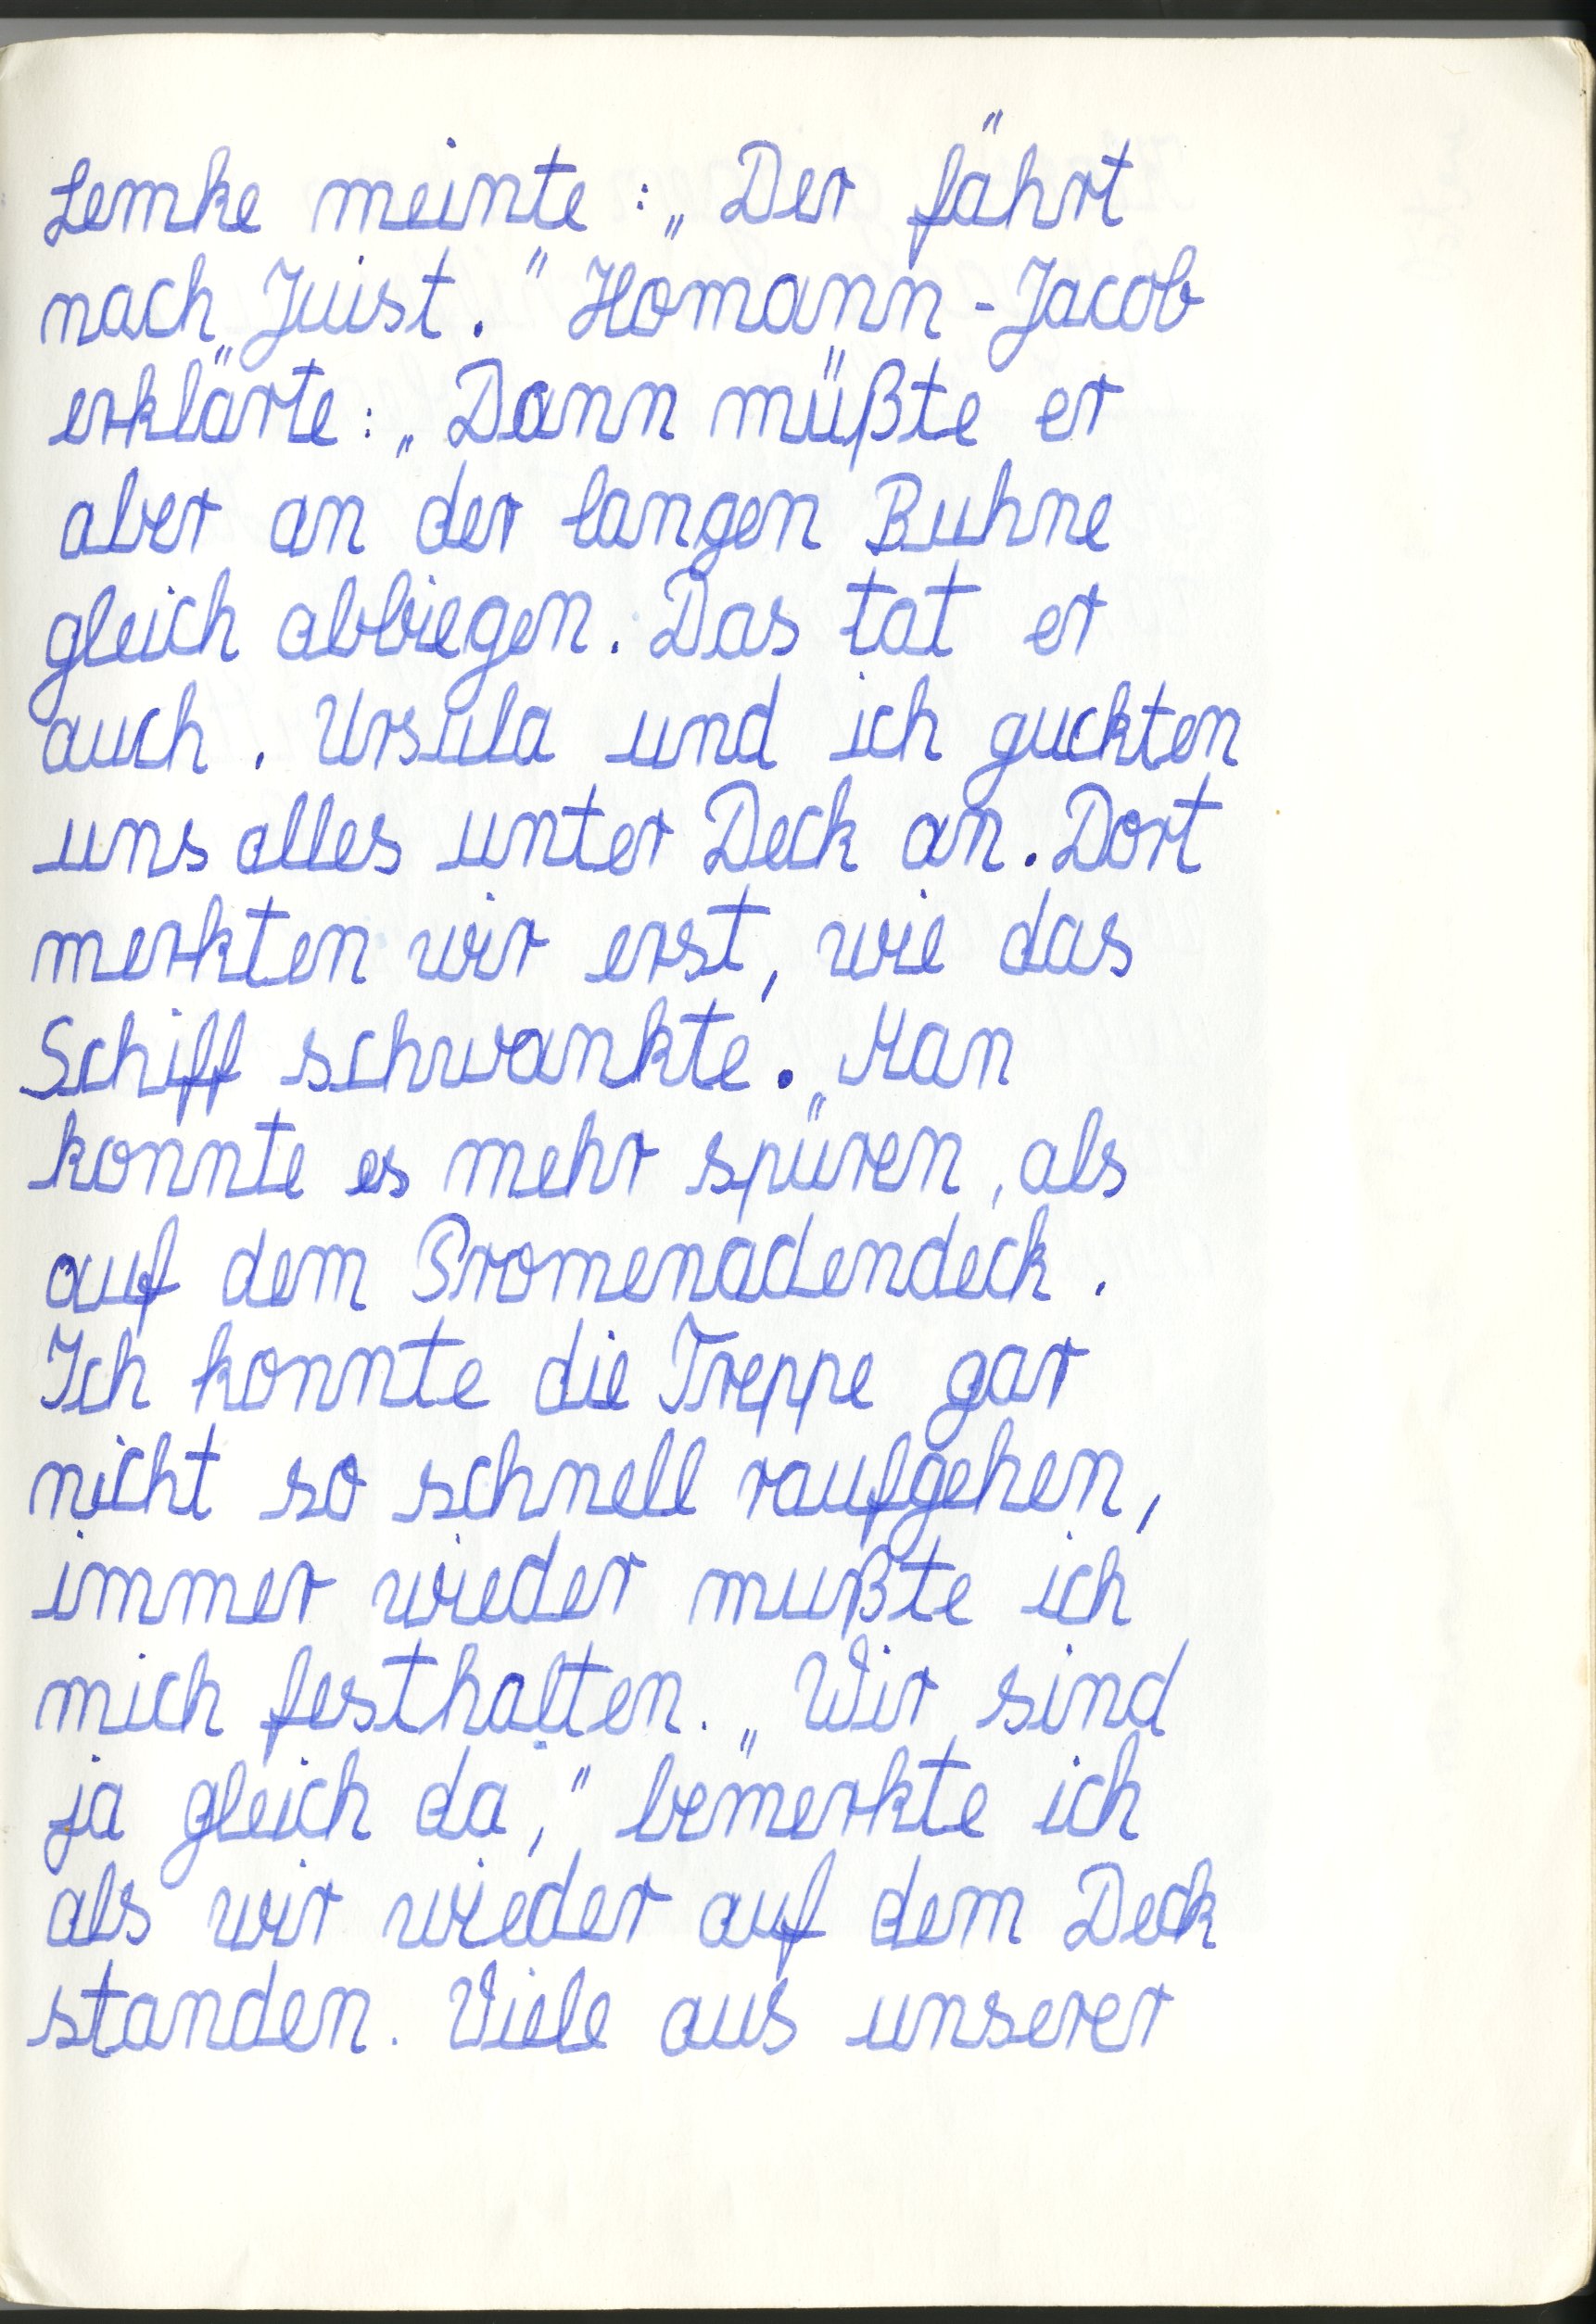 Lemke meinte: „Der fährt
nach Juist." Homann-Jacob
erklärte: „Dann müßte er
aber an der langen Buhne
gleich abbiegen. Das tat er
auch. Ursula und ich guckten
uns alles unter Deck an. Dort
merkten wir erst, wie das
Schiff schwankte. Man
konnte es mehr spüren, als
auf dem Promenadendeck.
Ich konnte die Treppe gar
nicht so schnell raufgehen,
immer wieder mußte ich
mich festhalten. „Wir sind
ja gleich da," bemerkte ich
als wir wieder auf dem Deck
standen. Viele aus unserer